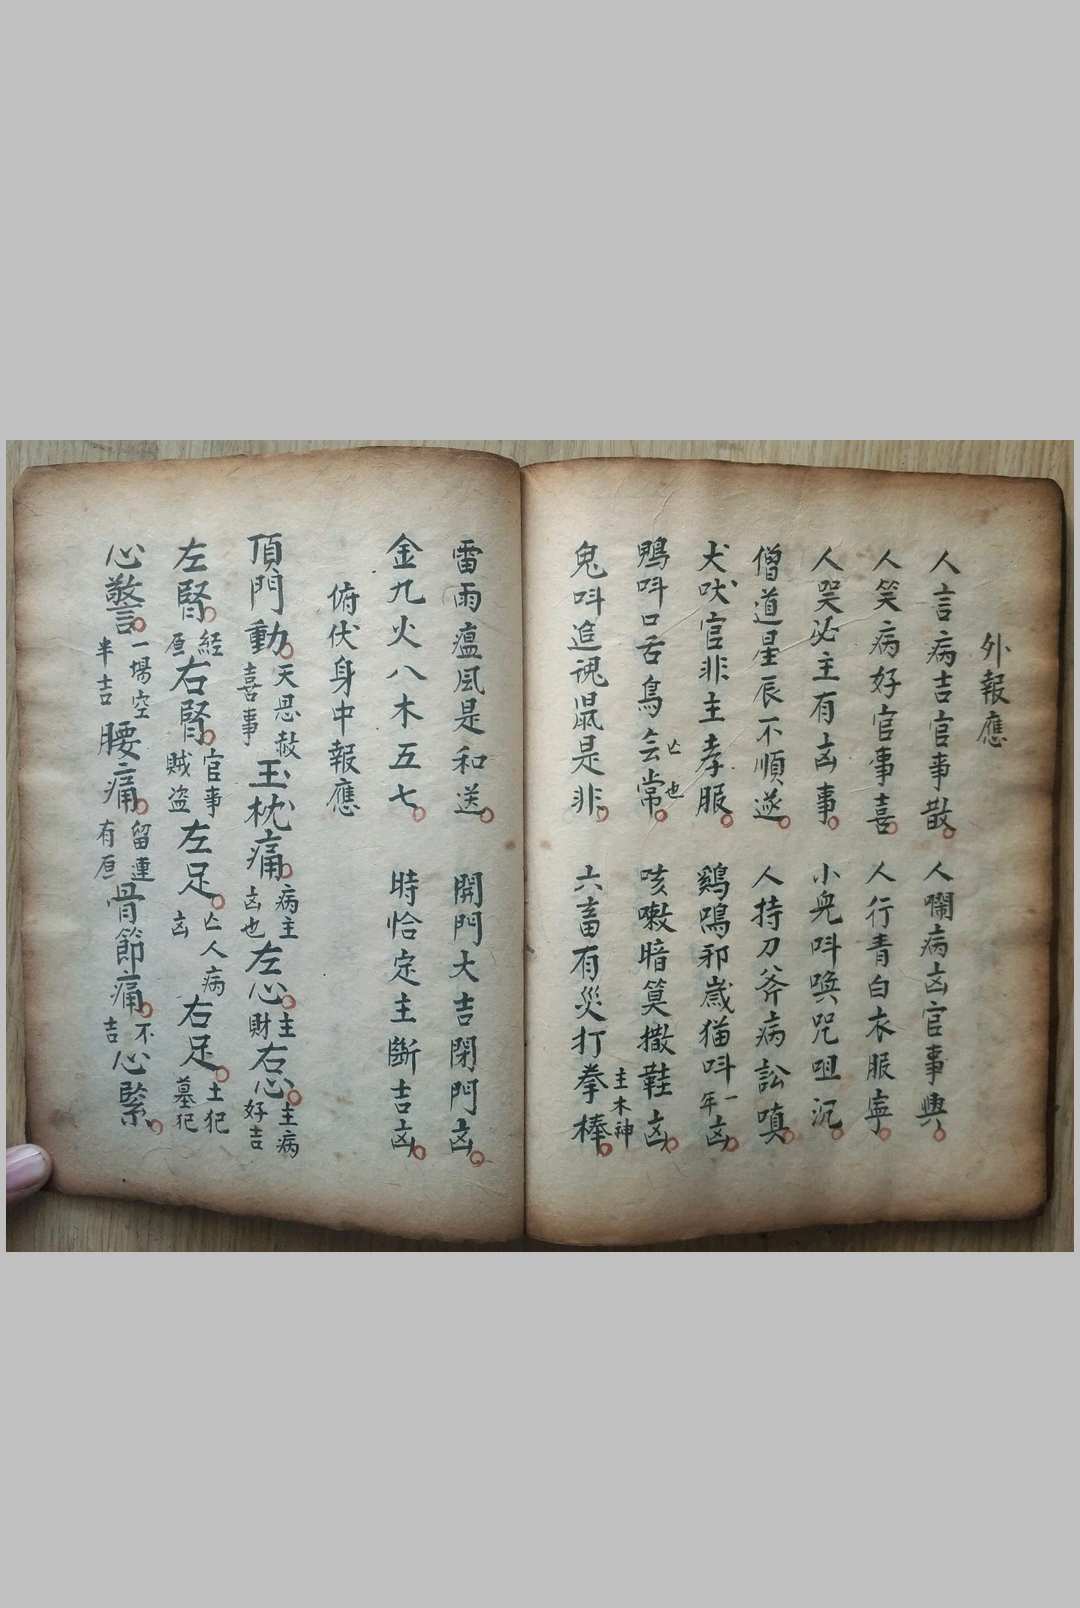 外報應
人言病吉官事散 人鬧病凶官事興
人笑病好官事喜 人行青白衣服寧
人哭必主有凶事 小兒呌喚咒咀沉
僧道星辰不順遂 人持刀斧病訟嗔
犬吠官非主孝服 鷄鳴邪歲猫呌一年凶
鴉呌口舌鳥亡也常 咳嗽暗箕撒鞋凶
鬼呌追魂鼠是非 六畜有災打拳棒主木神
雷雨瘟風是和送 開門大吉閉門凶
金九火八木五七 時恰定主斷吉凶
俯伏身中報應
頂門動天恩赦喜事 玉枕痛病主凶也 左心主財 右心主病好吉
左腎經 右腎官事賊盗 左足亡人病凶 右足土犯墓犯
心警一場空半吉 腰痛留連有 骨節痛不吉 心緊